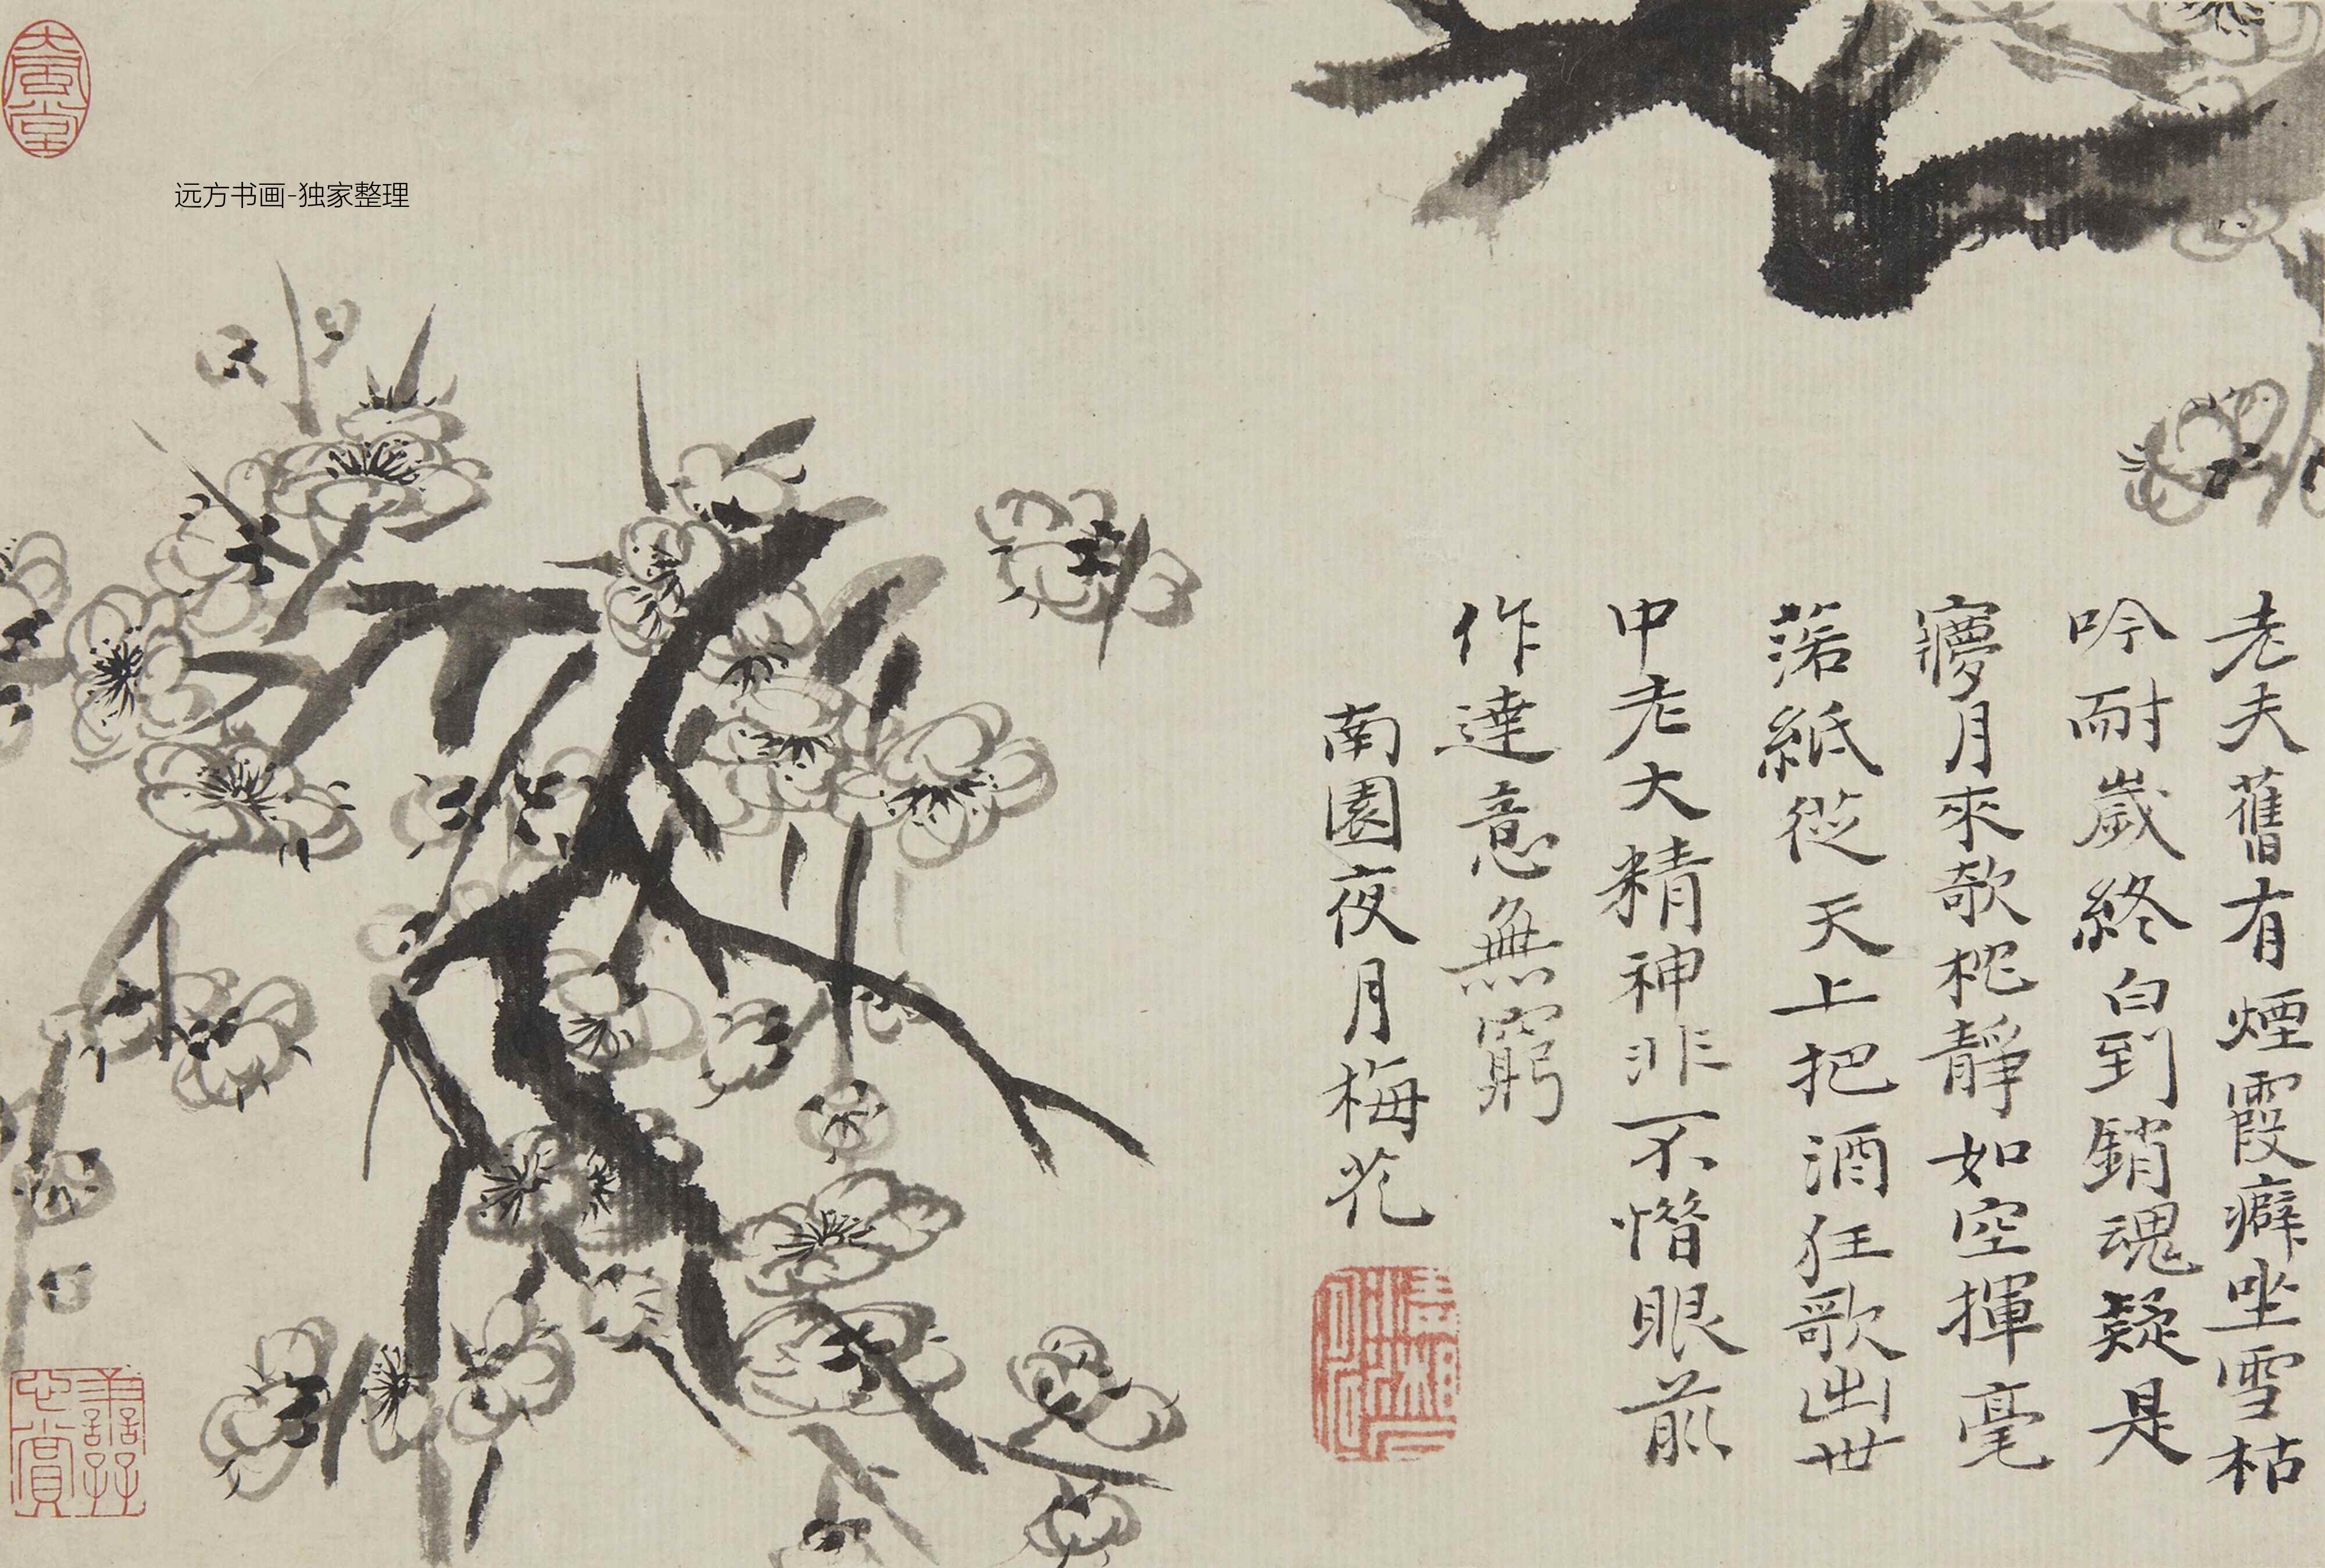 老夫舊有煙霞癖坐雪枯
吟耐歲終白到銷魂疑是
㝱月來欹枕靜如空揮毫
落紙從天上把酒狂歌出世
中老大精神非不惜眼前
作達意無窮
南園夜月梅花
大風堂
远方书画-独家整理